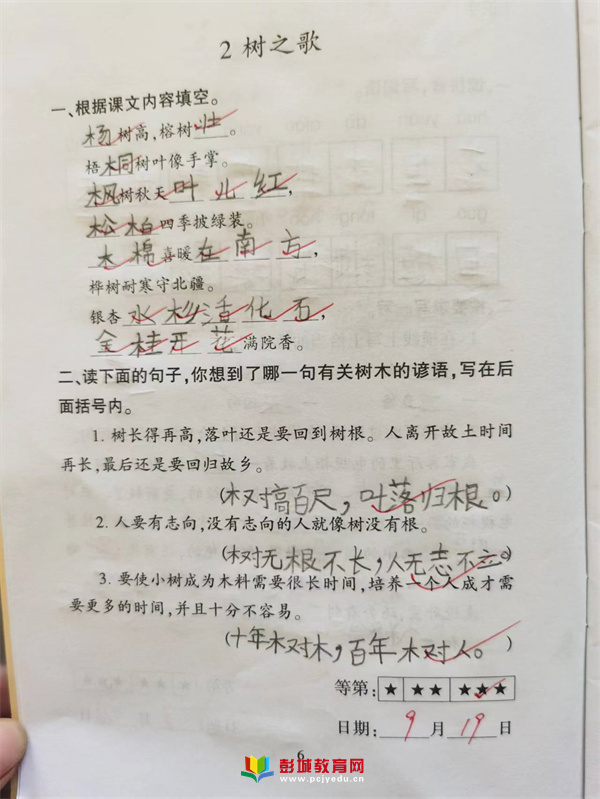 2 树之歌
一、根据课文内容填空。
杨树高,榕树壮。
梧桐树叶像手掌。
枫树秋天叶儿红,
松柏四季披绿装。
木棉喜暖在南方,
桦树耐寒守北疆。
银杏水杉活化石,
金桂开花满院香。
二、读下面的句子,你想到了哪一句有关树木的谚语,写在后
面括号内。
1. 树长得再高,落叶还是要回到树根。人离开故土时间
再长,最后还是要回归故乡。
(树高百尺,叶落归根。)
2. 人要有志向,没有志向的人就像树没有根。
(树无根不长,人无志不立。)
3. 要使小树成为木料需要很长时间,培养一个人成才需
要更多的时间,并且十分不容易。
(十年树木,百年树人。)
等第: ★ ★★ ★★★
日期: 9 月 19 日
6
彭城教育网
www.pcjyedu.cn